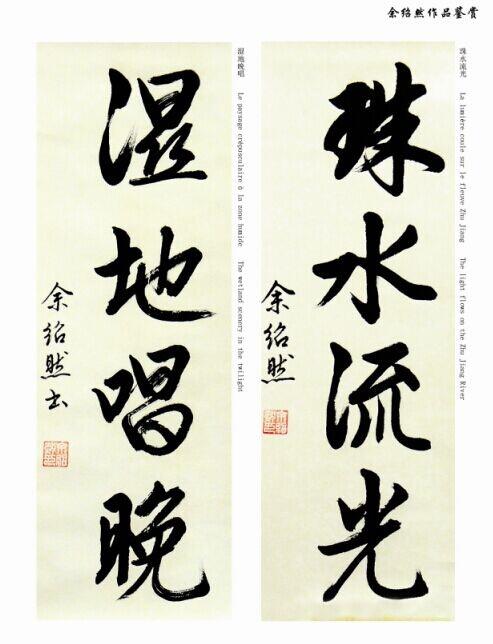 余绍然作品鉴赏
珠水流光
余绍然
珠水流光 La lumière coule sur le fleuve Zhu Jiang The light flows on the Zhu Jiang River
湿地唱晚
余绍然书
湿地晚唱 Le paysage crépusculaire à la zone humide The wetland scenery in the twilight